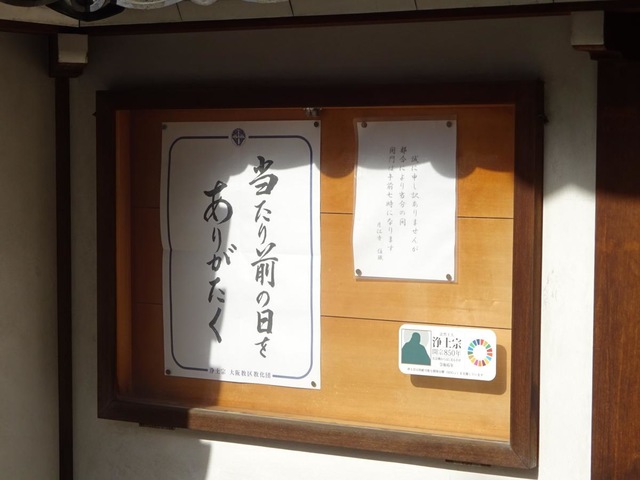 当たり前の日を
ありがたく
浄土宗 大阪教区教化団
誠に申し訳ありませんが
都合により当分の間
開門は午前七時になります
浄土宗
開宗850年